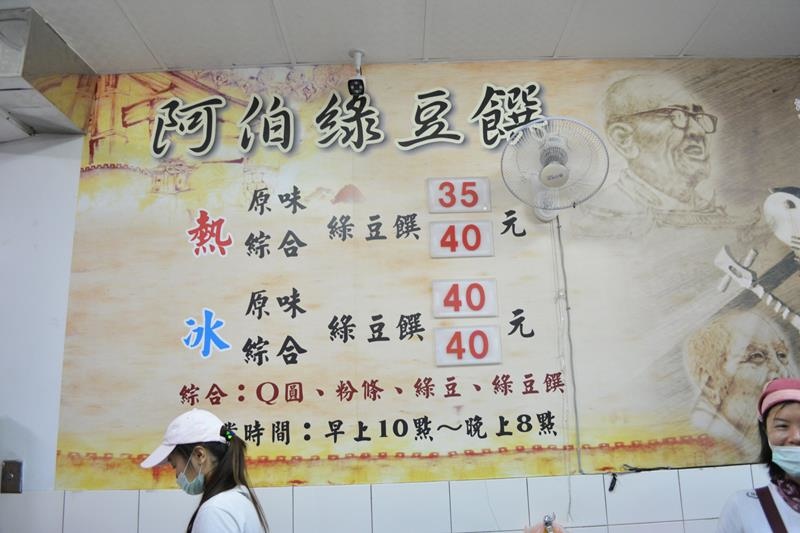 阿伯綠豆饌
熱 原味 綠豆饌 35 元
綜合 40
冰 原味 綠豆饌 40 元
綜合 40
綜合：Q圓、粉條、綠豆、綠豆饌
時間：早上10點～晚上8點